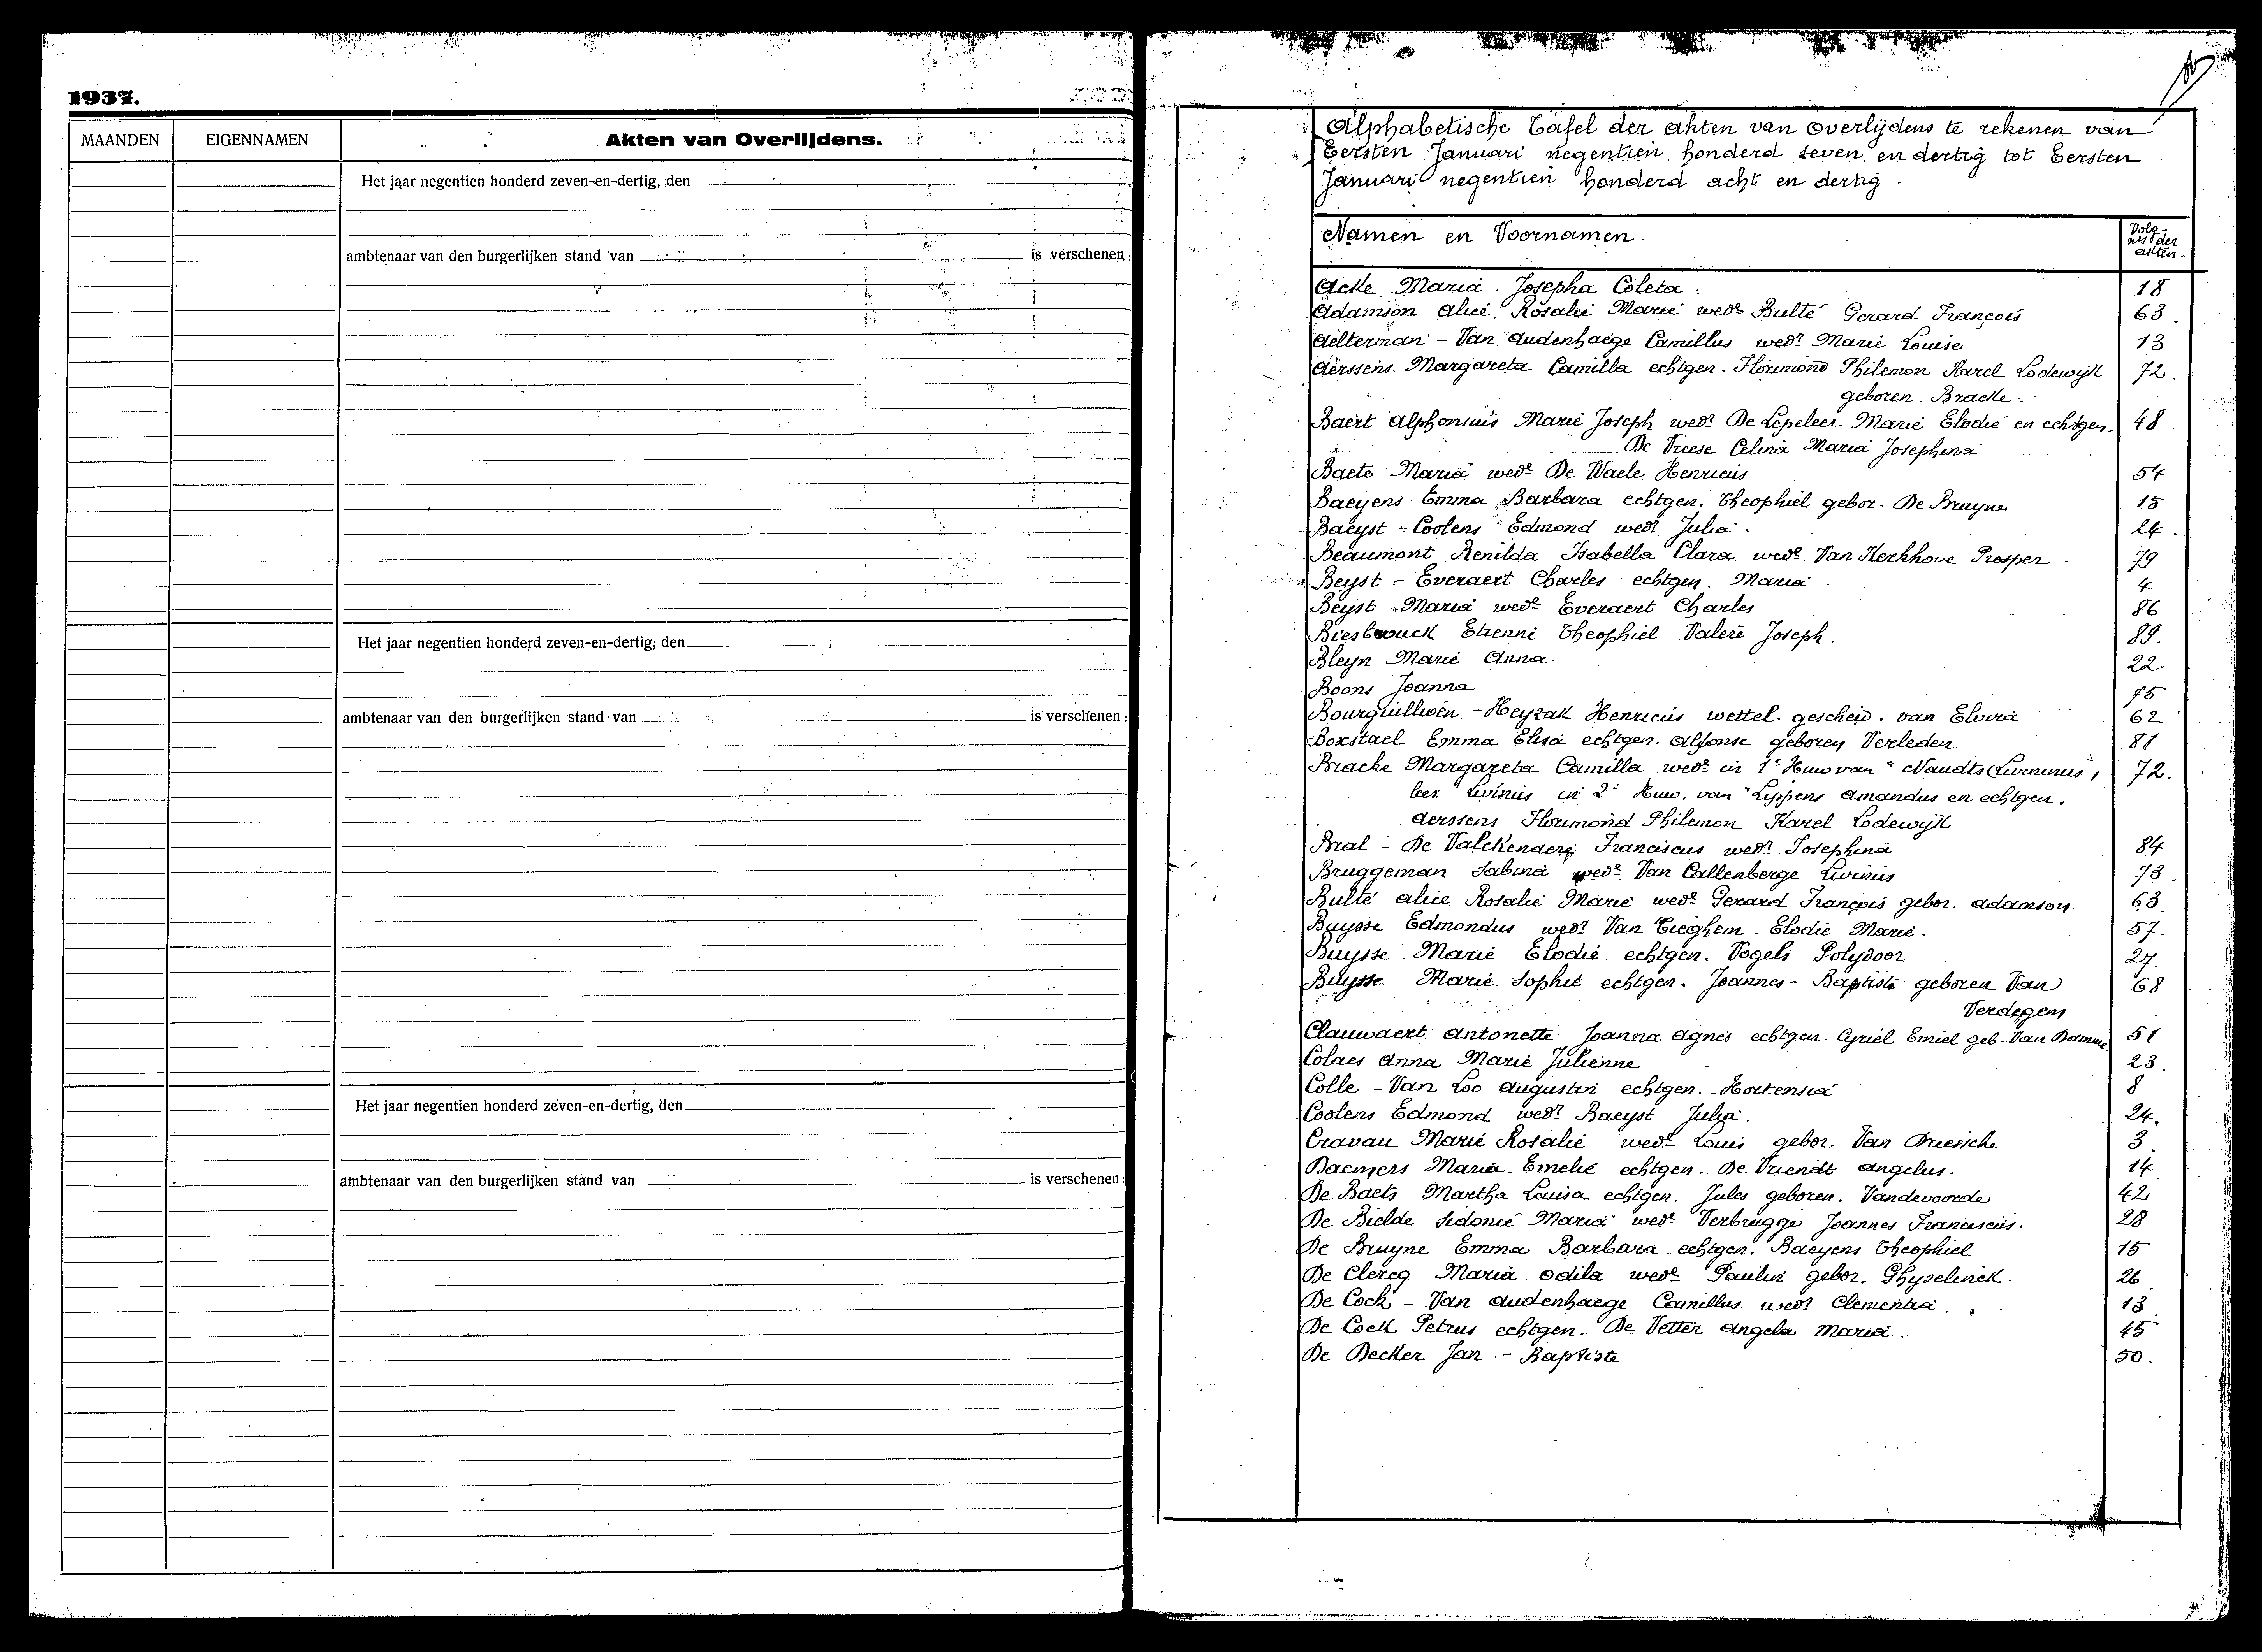 1937.
MAANDEN EIGENNAMEN Akten van Overlijdens.
Het jaar negentien honderd zeven-en-dertig, den
ambtenaar van den burgerlijken stand van is verschenen:
Het jaar negentien honderd zeven-en-dertig, den
ambtenaar van den burgerlijken stand van is verschenen:
Het jaar negentien honderd zeven-en-dertig, den
ambtenaar van den burgerlijken stand van is verschenen:
Alphabetische Tafel der akten van overlijdens te rekenen van
Eersten Januari negentien honderd seven en dertig tot Eersten
Januari negentien honderd acht en dertig.
Namen en Voornamen
Volg-
nrs der
akten.
Acke Maria Josepha Coleta 18
Adamson Alice Rosalie Marie wede Bulté Gerard François 63
Aelterman - Van Audenhaege Camillus wedr Marie Louise 13
Aerssens Margareta Camilla echtgen. Florimond Philemon Karel Lodewijk 72.
geboren Bracke
Baert Alphonsius Marie Joseph wedr De Lepeleer Marie Elodie en echtgen. 48
De Vreese Celina Maria Josephina
Baete Maria wede De Waele Henricus 54
Baeyens Emma Barbara echtgen. Theophiel gebor. De Bruyne 15
Baeyst - Coolens Edmond wedr Julia. 24.
Beaumont Renilda Isabella Clara wede Van Kerkhove Prosper 79
Beyst - Everaert Charles echtgen. Maria. 4
Beyst Maria wede Everaert Charles 86
Biesbrouck Etienne Theophiel Valere Joseph. 89.
Bleyn Marie Anna. 22.
Boons Joanna
Henricus wettel. gescheid. van Elvira 62
Boxstael Emma Elisa echtgen. Alfonse geboren Verleden 81
Bracke Margareta Camilla wede in 1e Huw van Naudts 72.
Livinus in 2e Huw. van Lippens Amandus en echtgen.
Aerssens Florimond Philemon Karel Lodewijk
Bral - De Valckenaere Franciscus wedr Josephina 84
Bruggeman Sabina wede Van Callenberge Livinus 73.
Bulté Alice Rosalie Marie wede Gerard François gebor. Adamson 63.
Buysse Edmondus wedr Van Tieghem Elodie Marie. 57.
Buysse Marie Elodie echtgen. Vogels Polydoor 27.
Buysse Marie Sophie echtgen. Joannes - Baptiste geboren Van 68
Verdegem
Clauwaert Antonette Joanna Agnes echtgen. Cyriel Emiel geb. Van Damme 51
Colaes Anna Marie Julienne 23.
Colle - Van Loo Augustin echtgen. Hortensia 8
Coolens Edmond wedr Baeyst Julia. 24.
Cravau Marie Rosalie wede Louis gebor. Van Driessche 3.
Daemers Maria Emelie echtgen. De Vriendt Angelus. 14
De Baets Martha Louisa echtgen. Jules geboren. Vandevoorde 42
De Bielde Sidonie Maria wede Verbrugge Joannes Franciscus. 28
De Bruyne Emma Barbara echtgen. Baeyens Theophiel 15
De Clercq Maria Odila wede Paulin gebor. Ghyselinck. 26
De Cock - Van Audenhaege Camillus wedr Clementia. 13.
De Cock Petrus echtgen. De Vetter Angela Maria. 45
De Decker Jan - Baptiste 50.